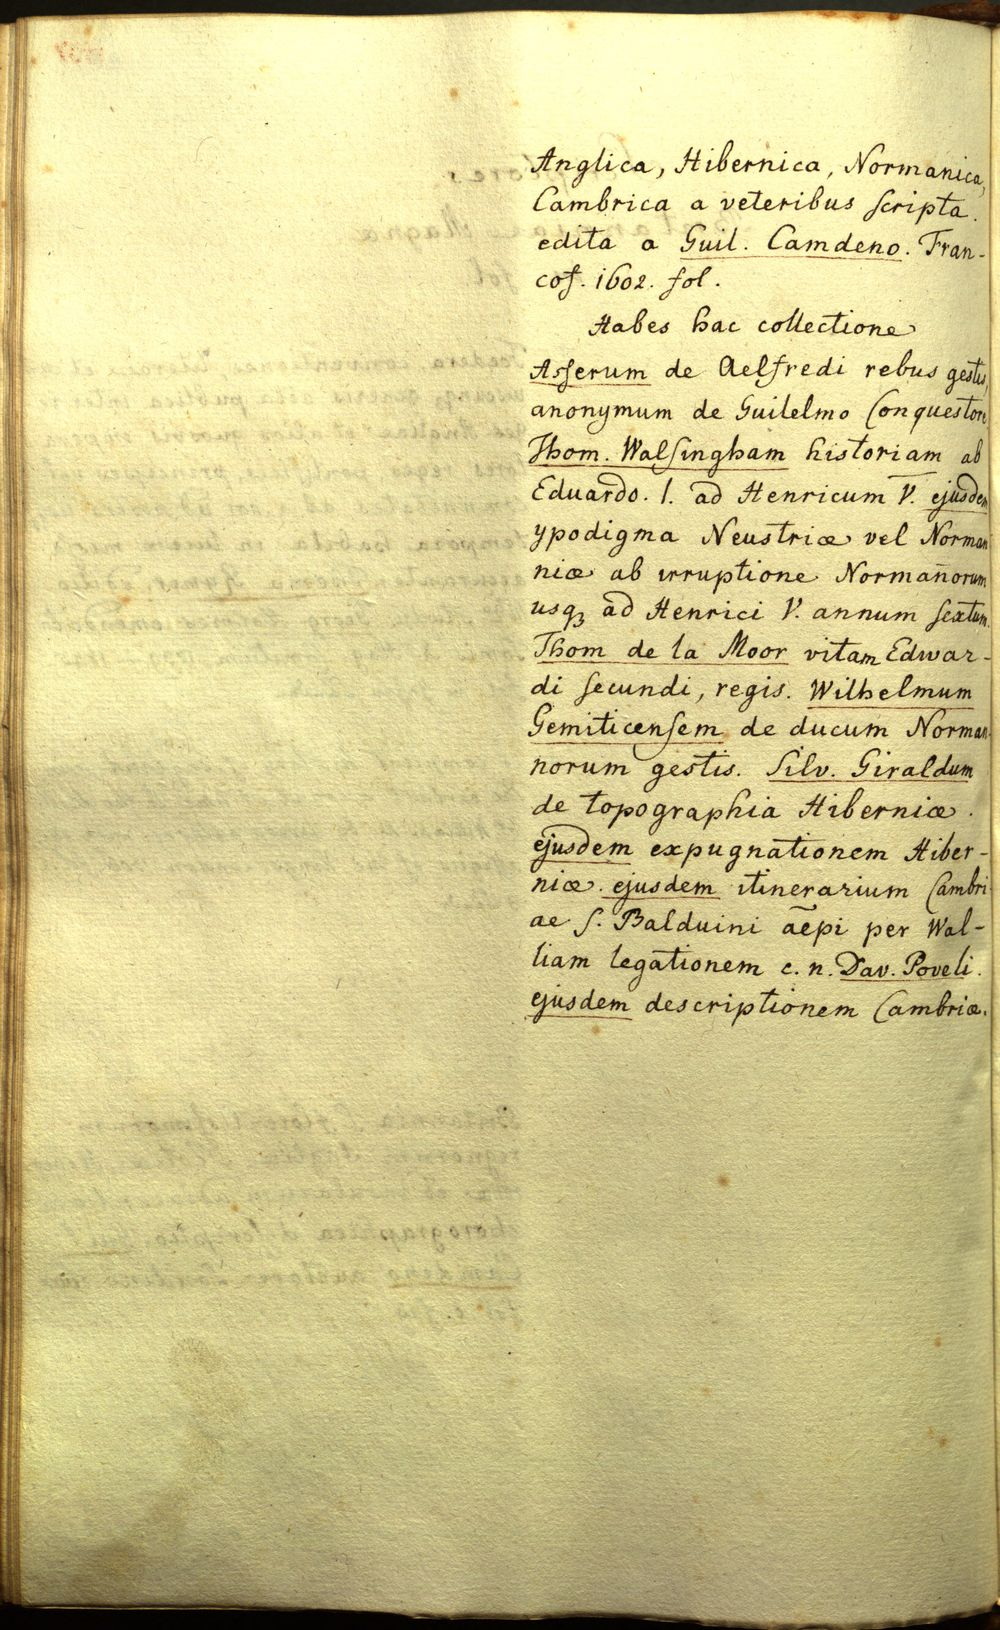 Anglica, Hibernica, Normanica,
Cambrica a veteribus ſcripta.
edita a Guil. Camdeno. Fran-
cof. 1602. fol.
Habes hac collectione
Aſſerum de Aelfredi rebus gestis,
anonymum de Guilelmo Conquestore
Thom. Walſingham historiam ab
Eduardo. I. ad Henricum V. ejusdem
ypodigma Neustriæ vel Norman
niæ ab irruptione Normañorum
usqꝫ ad Henrici V. annum ſextum.
Thom de la Moor vitam Edwar-
di ſecundi, regis. Wilhelmum
Gemiticenſem de ducum Norman
norum gestis. Silv. Giraldum
de topographia Hiberniæ.
ejusdem expugnationem Hiber-
niæ. ejusdem itinerarium Cambri
ae ſ. Balduini aẽpi per Wal-
liam legationem c. n. Dav. Poveli.
ejusdem descriptionem Cambriæ.